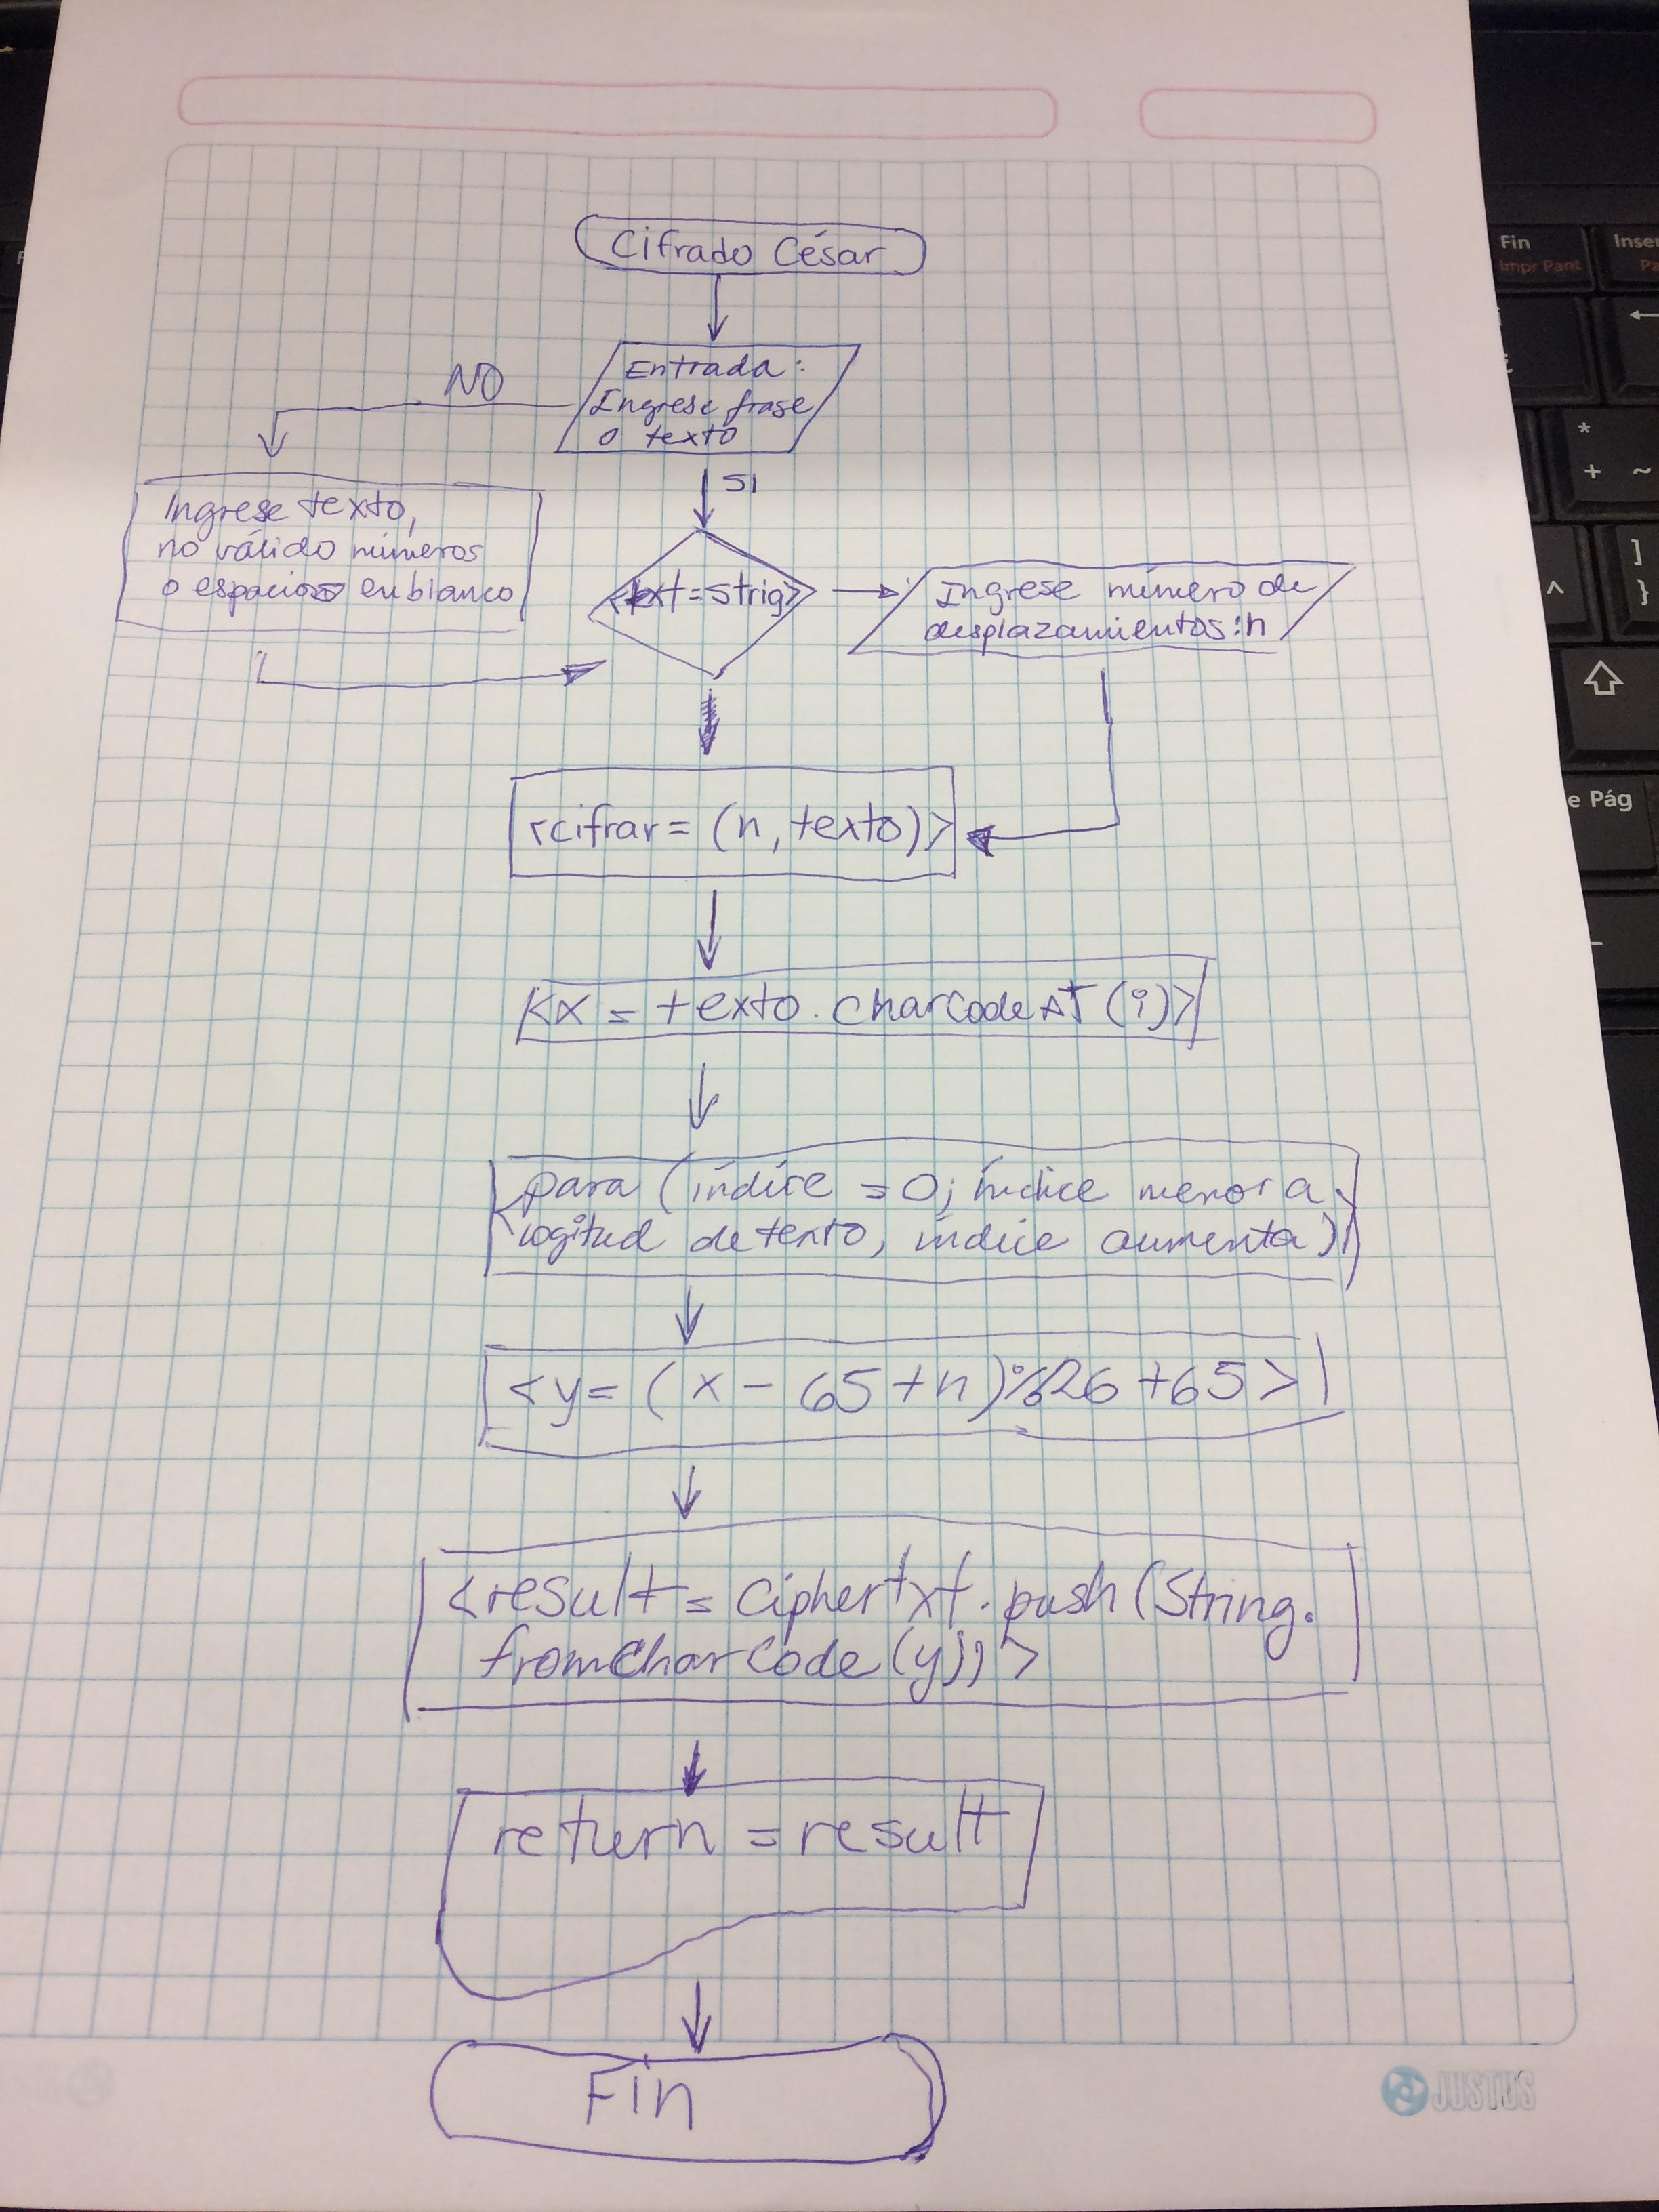 Cifrado César
Entrada:
Ingrese frase
o texto
NO
SI
Ingrese texto,
no válido números
o espacios en blanco
<txt=strig>
Ingrese número de
desplazamientos:n
<cifrar= (n, texto)>
<x = texto.charCodeAT(i)>
<para (índice =0; índice menor a
logitud de texto, índice aumenta)>
<y= (x - 65+n)%26 +65>
<result = ciphertxt.push(String.
fromCharCode(y))>
return = result
Fin
JUSTUS
Fin
Impr Pant
Inser
*
+ ~
]
}
^
e Pág
-